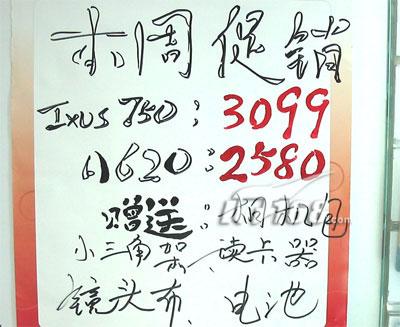 本周促销
IXUS 750: 3099
A620: 2580
赠送: 相机包
小三角架、读卡器
镜头布、电池